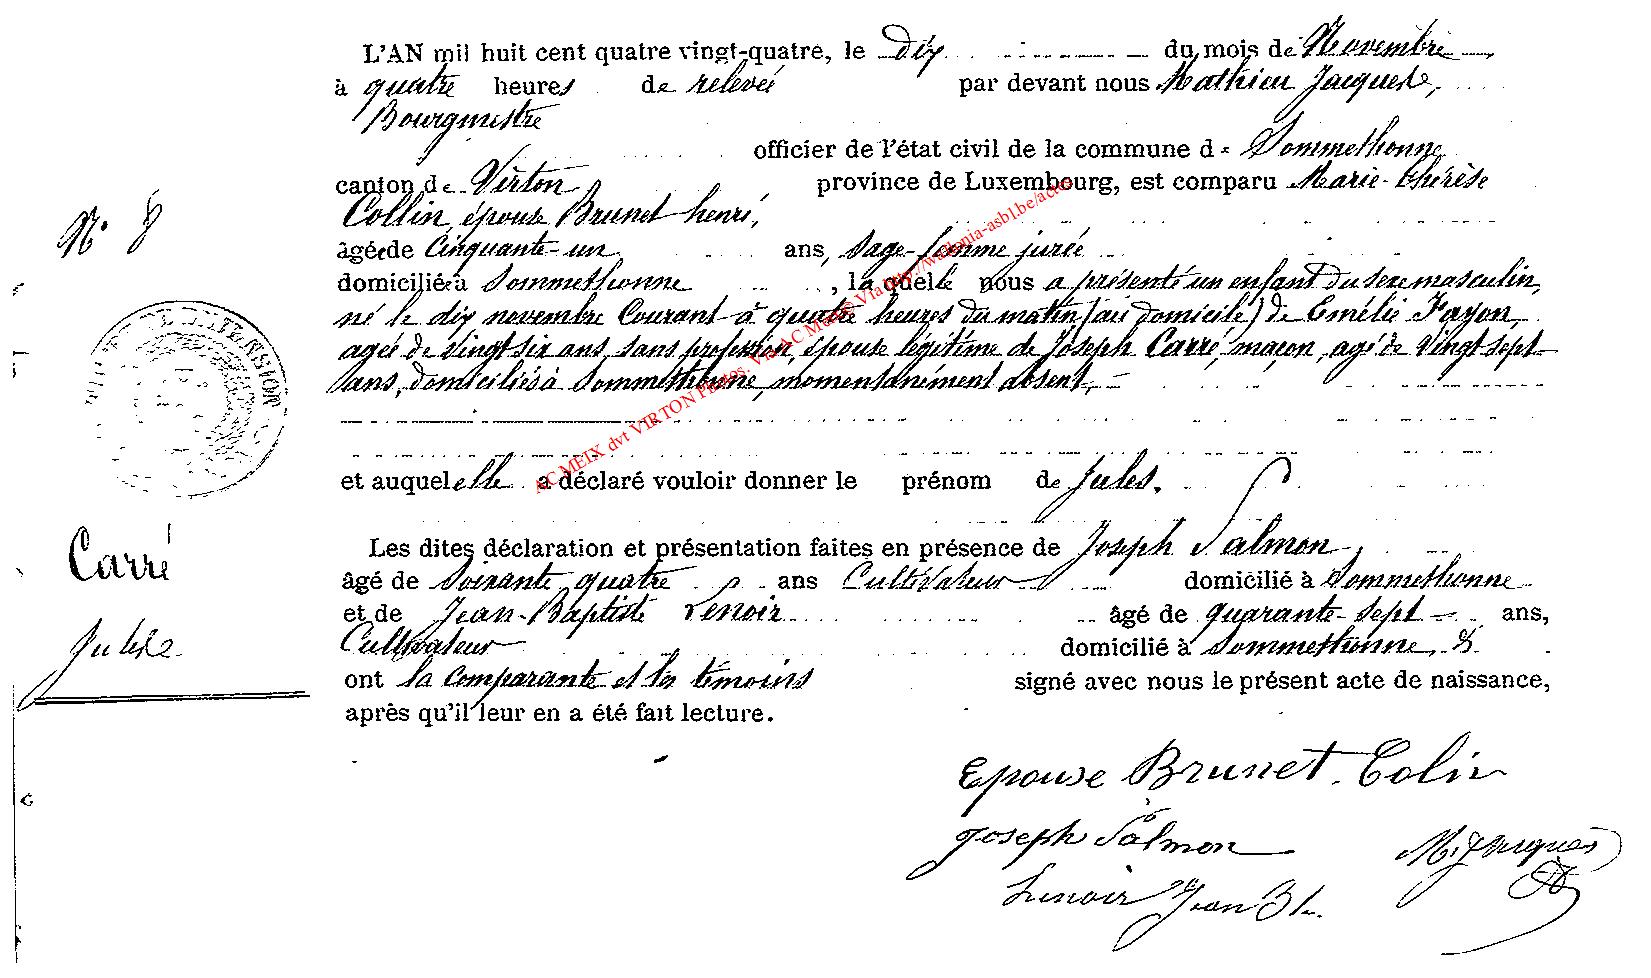 L'AN mil huit cent quatre vingt-quatre, le dix du mois de Novembre
à quatre heures de relevée par devant nous Mathieu Jacques,
Bourgmestre
officier de l'état civil de la commune de Sommethonne
canton de Virton province de Luxembourg, est comparu Marie-thérèse
Collin, épouse Brunet henri,
âgée de Cinquante-un ans, sage-femme jurée
domiciliée à Sommethonne, laquelle nous a présenté un enfant du sexe masculin,
né le dix novembre Courant à quatre heures du matin (au domicile) de Emélie Fayon,
agée de vingt six ans, sans profession, épouse légitime de Joseph Carré, maçon, agé de vingt-sept
ans, domiciliés à Sommethonne, momentanément absent,
et auquel elle a déclaré vouloir donner le prénom de Jules.
Les dites déclaration et présentation faites en présence de Joseph Salmon,
âgé de Soixante quatre ans Cultivateur domicilié à Sommethonne
et de Jean-Baptiste Lenoir âgé de quarante-sept ans,
Cultivateur domicilié à Sommethonne, &
ont la comparante et les témoins signé avec nous le présent acte de naissance,
après qu'il leur en a été fait lecture.
N° 8
Carré
Jules
Epouse Brunet-Colin
Joseph Salmon
M. Jacques
Lenoir Jean Bte
AC MEIX dvt VIRTON Photos. Via AC Meix© Via http://wallonia-asbl.be/actes